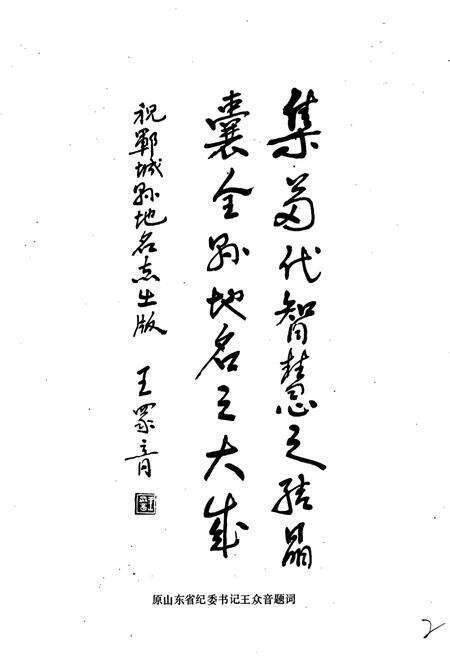 集万代智慧之结晶
囊全县地名之大成
祝鄆城县地名志出版
王众音
原山东省纪委书记王众音题词
2